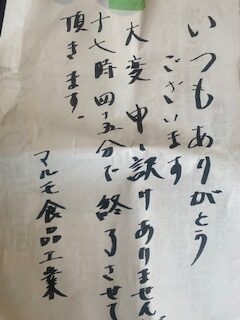 いつもありがとう
ございます
大変申し訳けありません
十七時四十五分で終了させて
頂きます。
マルモ食品工業